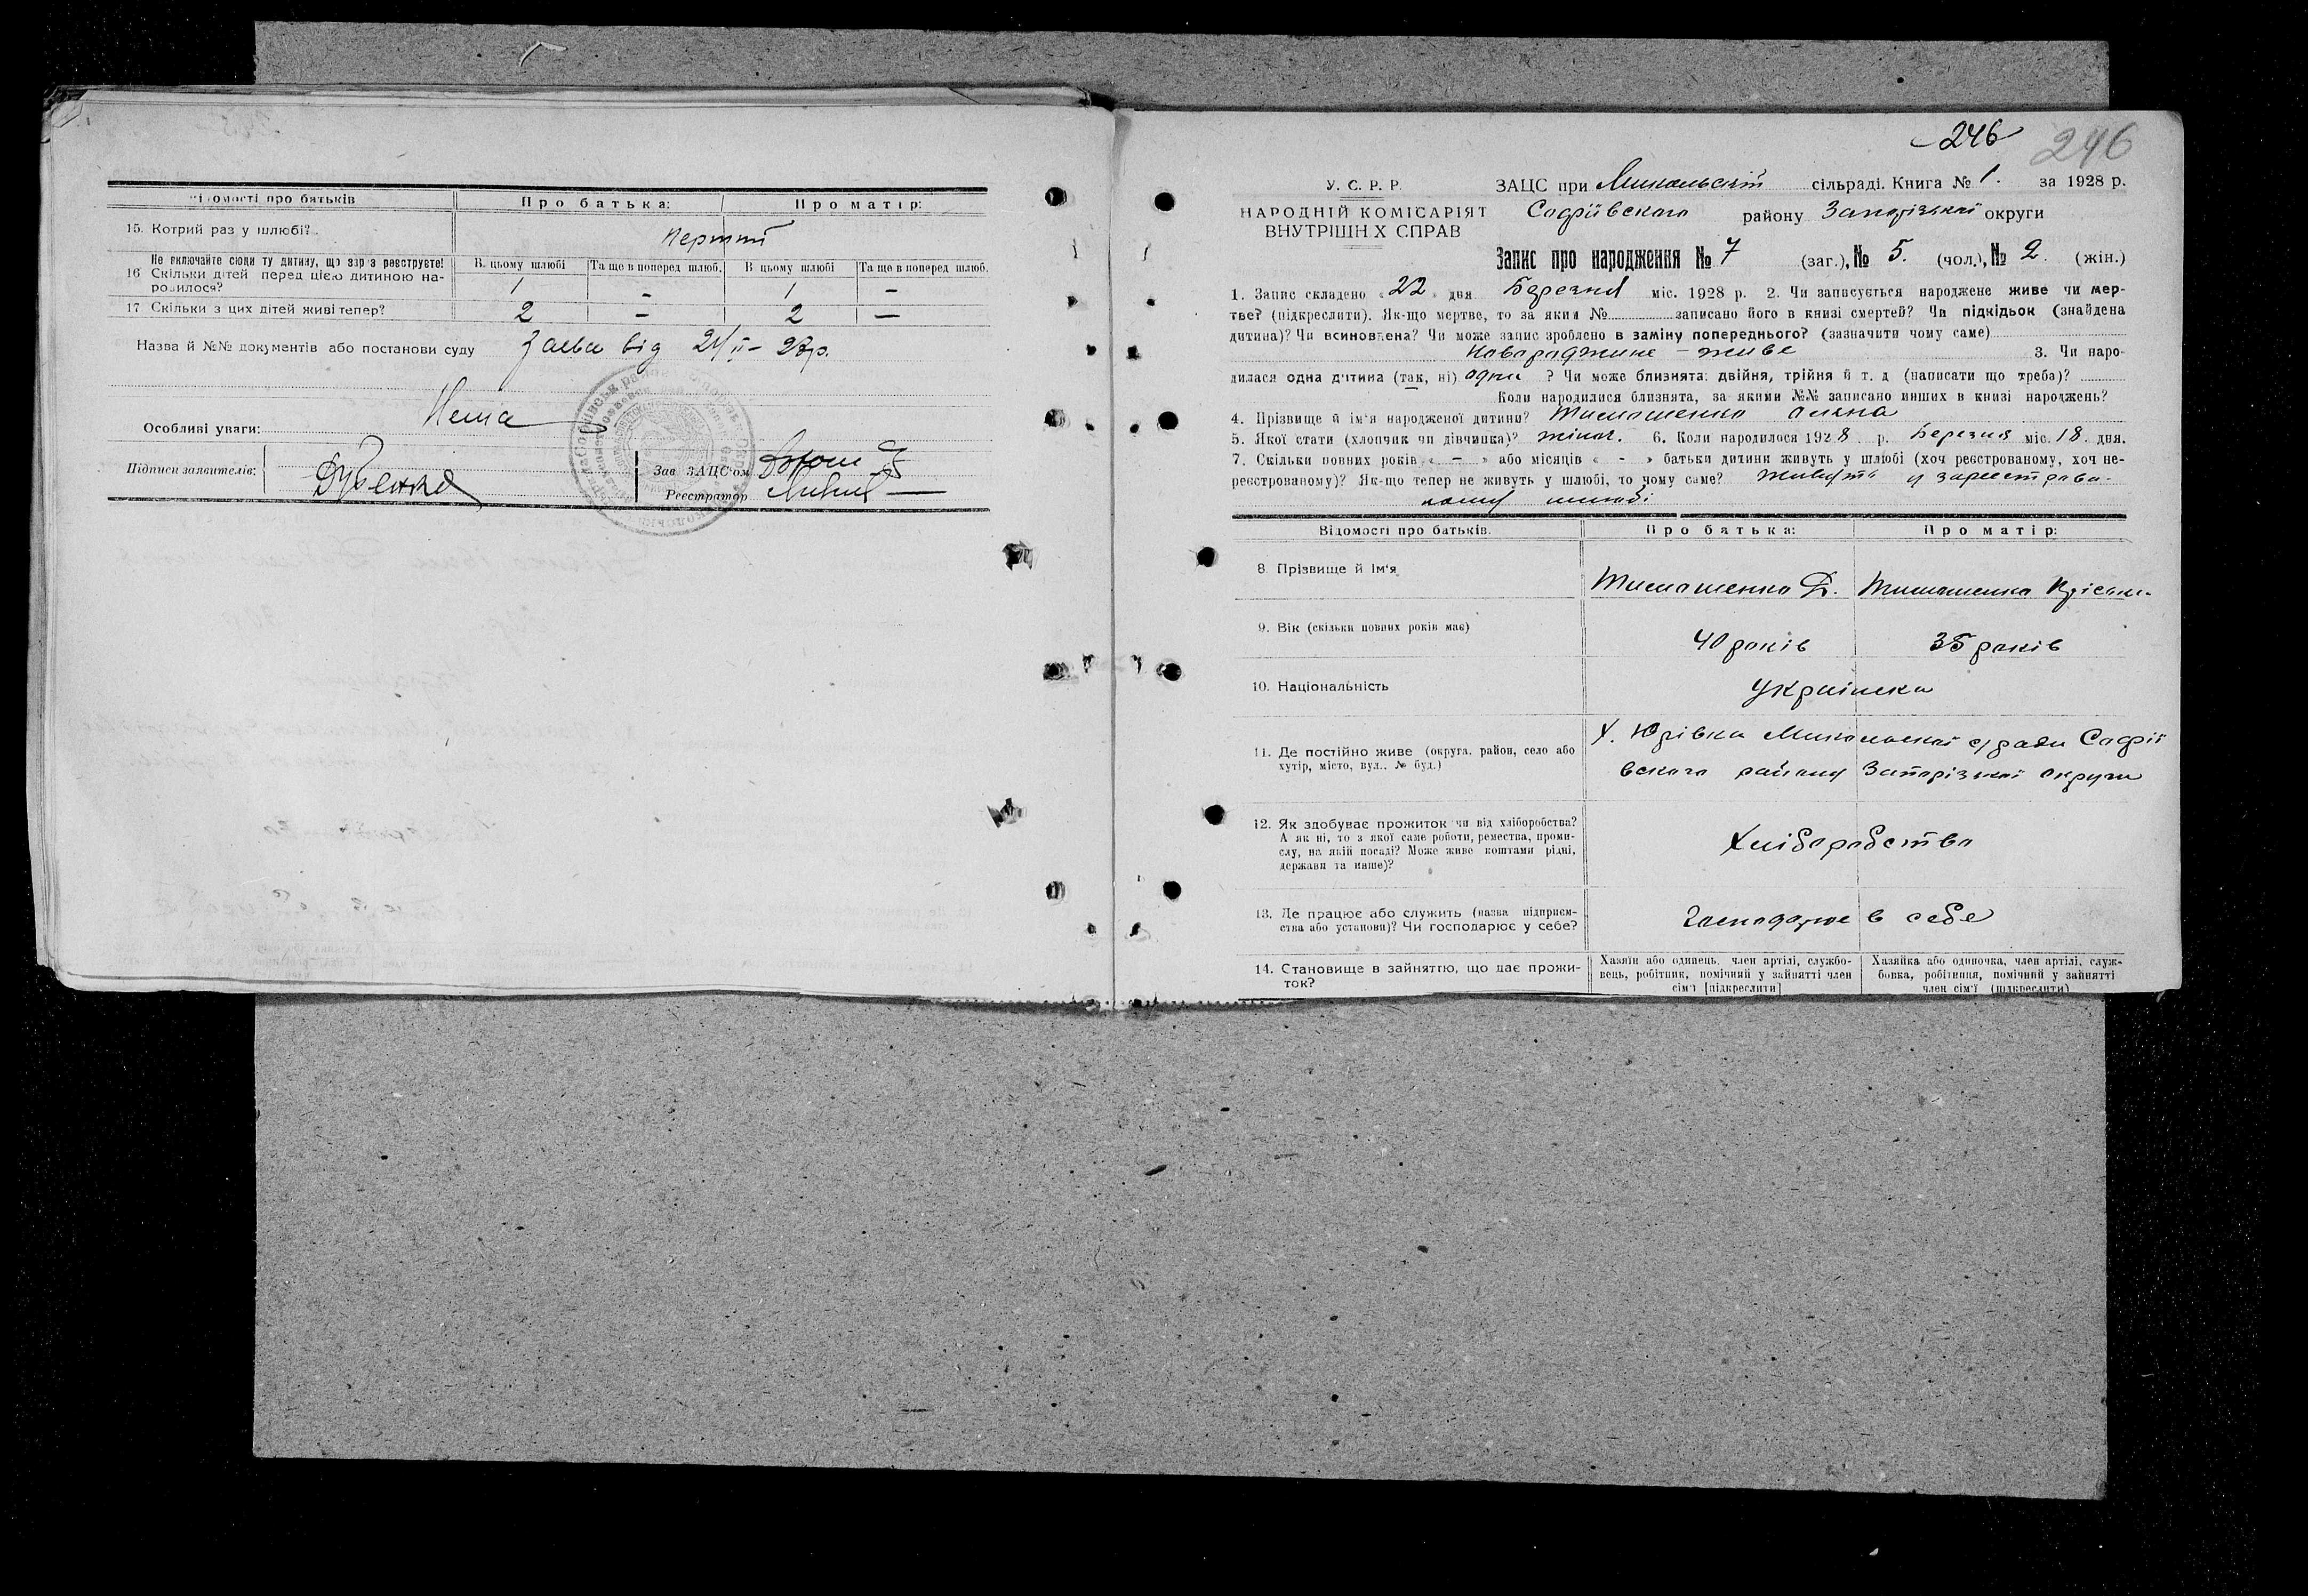 Відомості про батьків
Про батька:
Про матір:
15. Котрий раз у шлюбі?
Перший
Не включайте сюди ту дитину, що зараз реєструєте!
16 Скільки дітей перед цією дитиною на-
родилося?
В цьому шлюбі
Та ще в поперед шлюб.
В цьому шлюбі
Та ще в поперед шлюб.
1 – 1 –
17 Скільки з цих дітей живі тепер?
2 – 2 –
Назва й №№ документів або постанови суду
Заява від
Особливі уваги:
Нема
Підписи заявителів:
Зав ЗАЦС'ом
Реєстратор
246
246
У. С. Р. Р.
НАРОДНІЙ КОМІСАРІЯТ
ВНУТРІШНІХ СПРАВ
ЗАЦС при Микольській сільраді. Книга № 1. за 1928 р.
Софіївского району Запорізької округи
Запис про народження № 7 (заг.), № 5. (чол.), № 2. (жін.)
1. Запис складено «22» дня Березня міс. 1928 р. 2. Чи записується народжене живе чи мер-
тве? (підкреслити). Як-що мертве, то за яким № записано його в книзі смертей? Чи підкідьок (знайдена
дитина)? Чи всиновлена? Чи може запис зроблено в заміну попереднього? (зазначити чому саме)
Новароджине – живе 3. Чи наро-
дилася одна дитина (так, ні) одна ? Чи може близнята: двійня, трійня й т. д (написати що треба)?
Коли народилися близнята, за якими №№ записано инших в книзі народжень?
4. Прізвище й ім'я народженої дитини? Тимошенко
5. Якої стати (хлопчик чи дівчинка)? жіноч. 6. Коли народилося 1928 р. Березня міс. 18. дня.
7. Скільки повних років « – » або місяців « - » батьки дитини живуть у шлюбі (хоч реєстрованому, хоч не-
реєстрованому)? Як-що тепер не живуть у шлюбі, то чому саме? Живуть у зареєстрова-
ному шлюбі
Відомості про батьків.
Про батька:
Про матір:
8. Прізвище й ім'я
Тимошенко Д.
Тимошенко
9. Вік (скільки повних років має)
40 років
35 років
10. Національність
Українска
11. Де постійно живе (округа, район, село або
хутір, місто, вул.. № буд.)
Х. Юрівка Микольскої с/ради Софії
вского району Запорізької округи
12. Як здобуває прожиток чи від хліборобства?
А як ні, то з якої саме роботи, ремества, проми-
слу, на якій посаді? Може живе коштами рідні,
держави та инше)?
Хліборобство
13. Де працює або служить (назва підприєм-
ства або установи)? Чи господарює у себе?
Господарює в себе
14. Становище в зайняттю, що дає прожи-
ток?
Хазяїн або одинець, член артілі, службо-
вець, робітник, помічний у зайнятті член
сім'ї [підкреслити]
Хазяйка або одиночка, член артілі, служ-
бовка, робітниця, помічний у зайнятті
член сім'ї (підкреслити)